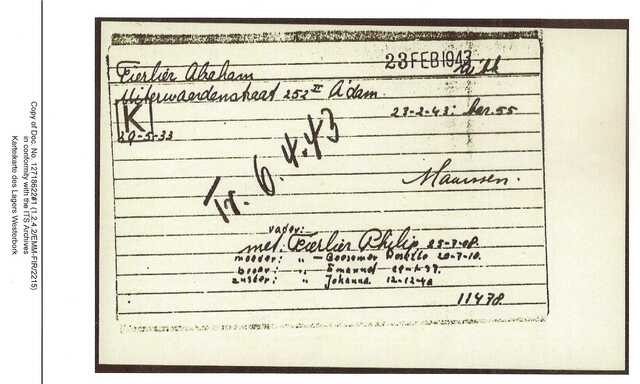 Copy of Doc. No. 12718622#1 (1.2.4.2/EMM-FIR/2215)
in conformity with the ITS Archives
Karteikarte des Lagers Westerbork
23 FEB 1943
Fierlier Abraham
Uiterwaardenstraat 252 II A'dam.
23-2-43: bar. 55
K
29-5-33
Tr. 6.4.43
vader:
met: Fierlier Philip 25-7-08.
moeder: " – 20-7-10.
broer: " Emanuel
zuster: " Johanna 12-12-40
11478.